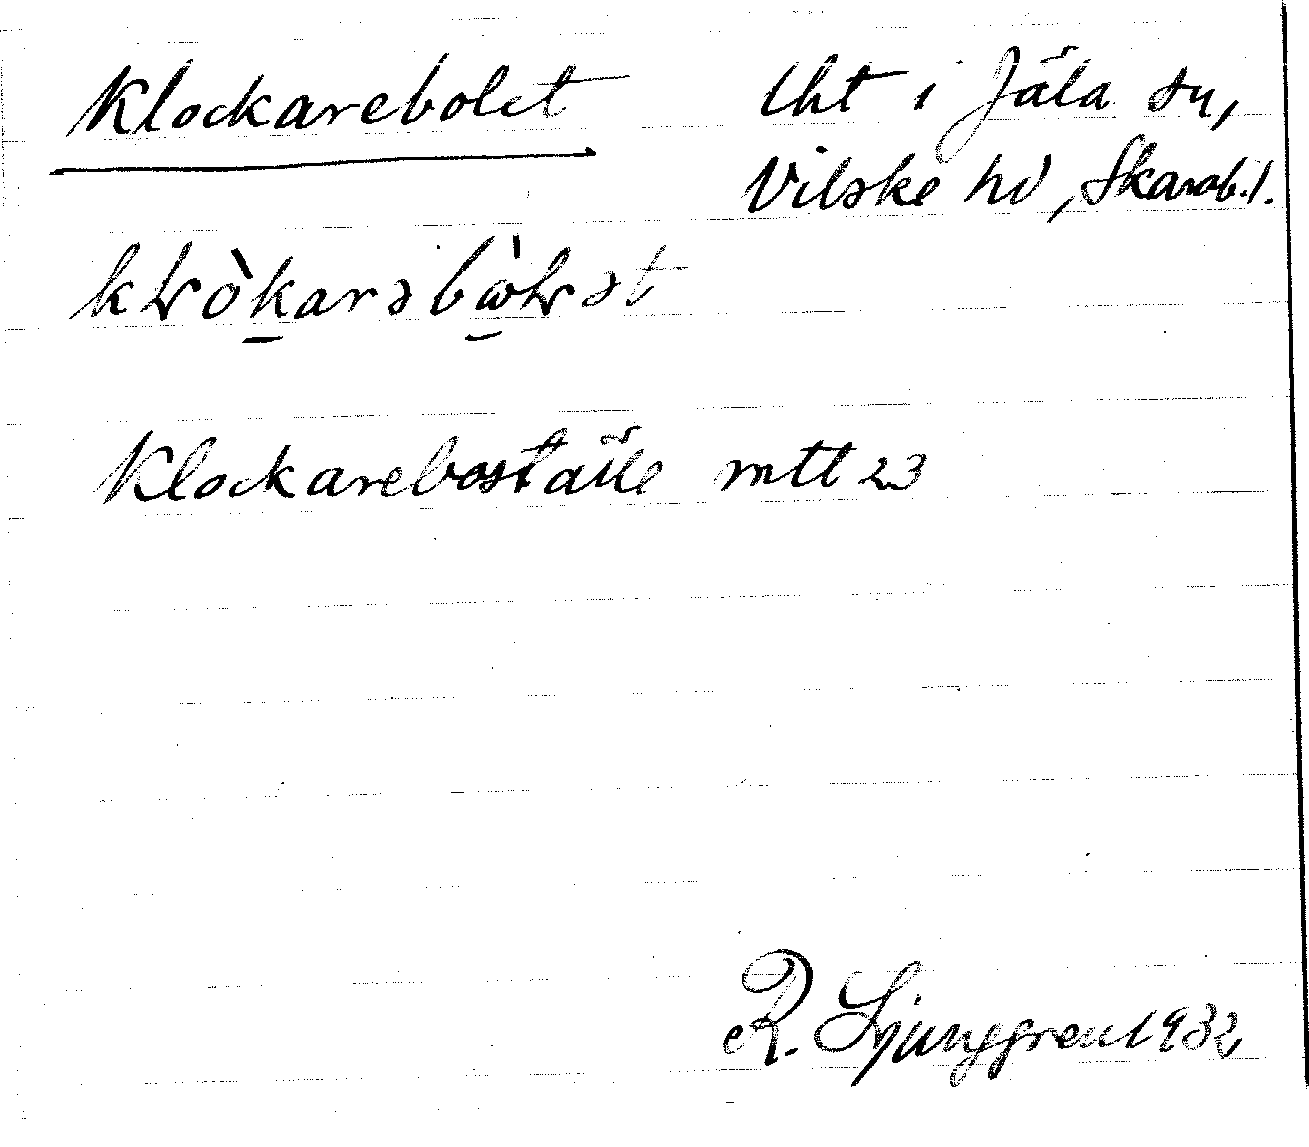 Klockarebolet lht i Jäla sn,
Vilske hd, Skarab. l.
Klockareboställe mtt 23
R. Ljunggren 1932